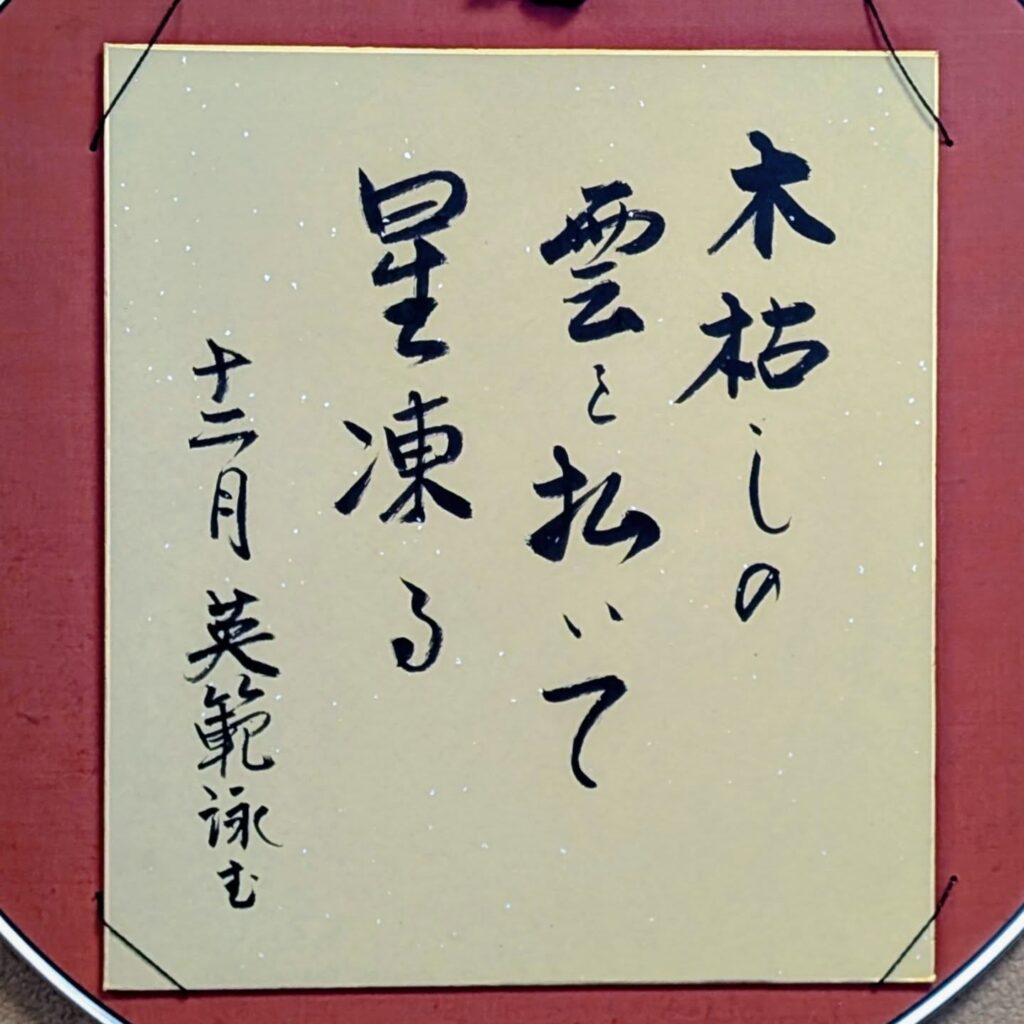 木枯しの
雲を払いて
星凍る
十二月 英範詠む